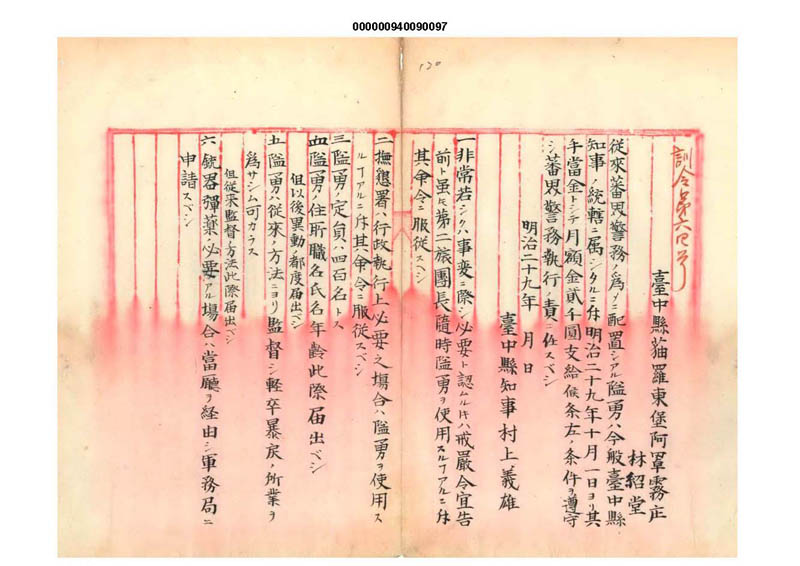 000000940090097
120
訓令第六四号
臺中縣猫羅東堡阿罩霧庄
林紹堂
從來蕃界警務ノ爲メニ配置シアル隘勇ハ今般臺中縣
知事ノ統轄ニ属シタルニ付明治二十九年十月一日ヨリ其
手當金トシテ月額金貳千圓支給候条左ノ条件ヲ遵守
シ蕃界警務執行ノ責ニ任スベシ
明治二十九年 月 日
臺中縣知事村上義雄
一非常若シクハ事変ニ際シ必要ト認ムルトキハ戒嚴令宣告
前ト雖トモ第二旅團長隨時隘勇ヲ使用スルコアルニ付
其命令ニ服從スベシ
二撫墾署ハ行政執行上必要之場合ハ隘勇ヲ使用ス
ルコアルニ付其命令ニ服從スベシ
三隘勇ノ定員ハ四百名トス
四隘勇ノ住所職名氏名年齡此際届出ベシ
但以後異動ノ都度届出ベシ
五隘勇ハ從來ノ方法ニヨリ監督シ軽卒暴戻ノ所業ヲ
爲サシム可カラス
但從來監督ノ方法此際届出ベシ
六銃器彈薬ノ必要アル場合ハ當廳ヲ経由シ軍務局ニ
申請スベシ